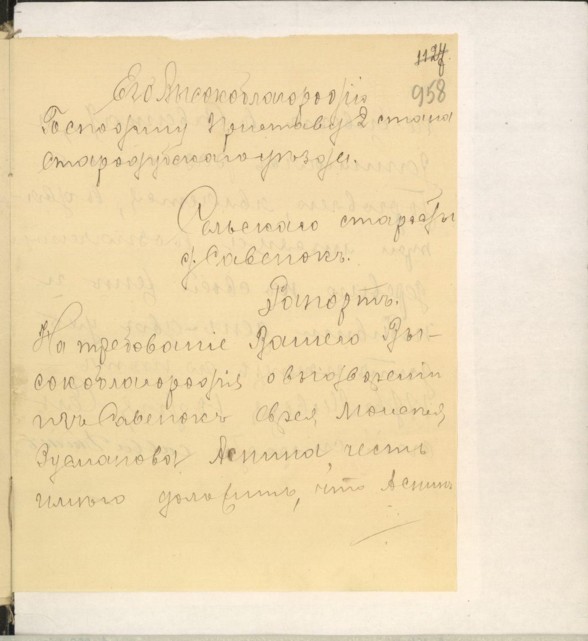 1124
958
Его Высокоблагородію
Господину Приставу 2 стана
стародубскаго уѣзда.
Сельскаго старосты
д. Савенокъ.
Рапортъ.
На требованіе Вашего Вы-
сокоблагородія о выдвореніи
изъ Савенокъ еврея
Аснина, честь
имѣю доложить, что Аснинъ